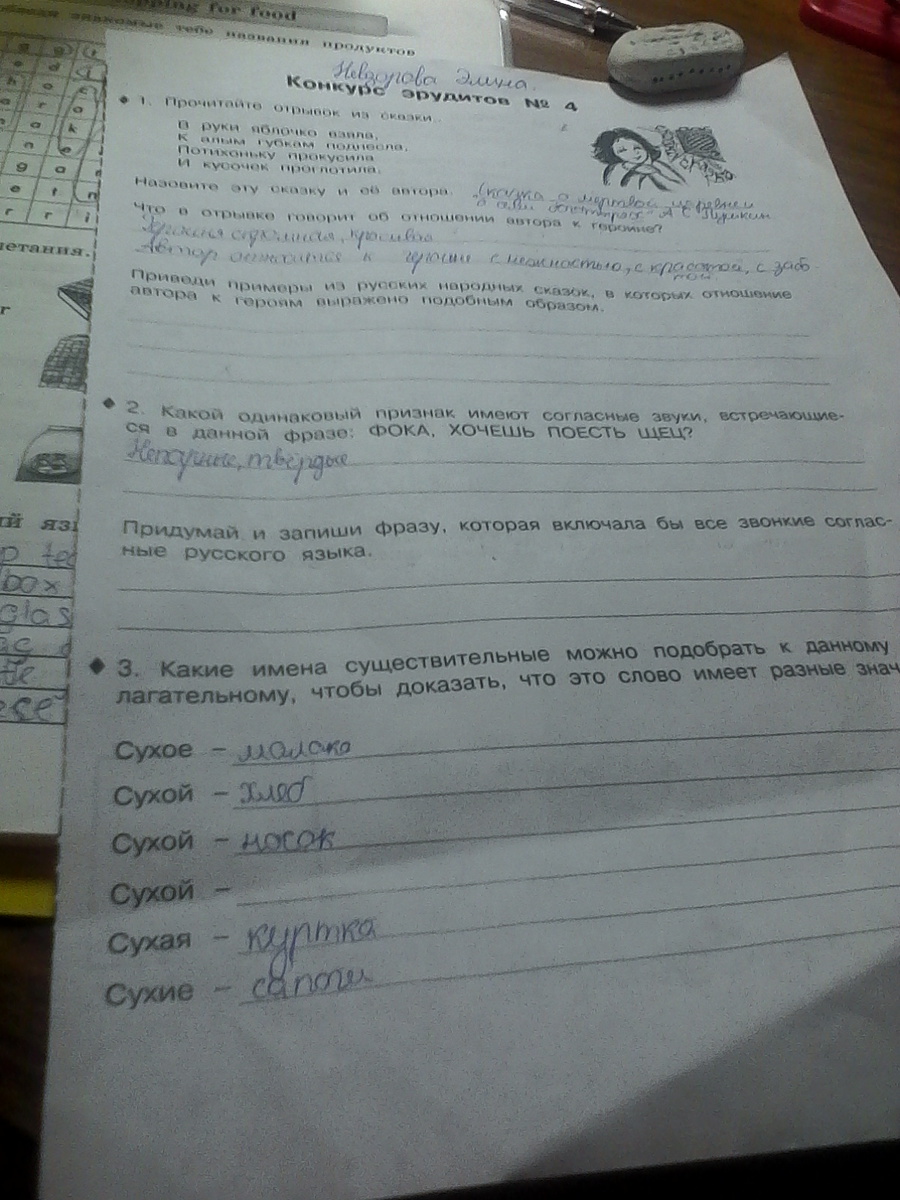 pping for food
обведи знакомые тебе названия продуктов
Невзорова Элина.
Конкурс эрудитов № 4
1. Прочитайте отрывок из сказки..
В руки яблочко взяла,
К алым губкам поднесла,
Потихоньку прокусила
И кусочек проглотила.
Назовите эту сказку и её автора. "Сказка о мёртвой царевне и
о семи богатырях" А С Пушкин
Что в отрывке говорит об отношении автора к героине?
скромная, красивая
Автор относится к героине с нежностью, с красотой, с забо-
той
Приведи примеры из русских народных сказок, в которых отношение
автора к героям выражено подобным образом.
2. Какой одинаковый признак имеют согласные звуки, встречающие-
ся в данной фразе: ФОКА, ХОЧЕШЬ ПОЕСТЬ ЩЕЦ?
Непарные, твёрдые
Придумай и запиши фразу, которая включала бы все звонкие соглас-
ные русского языка.
3. Какие имена существительные можно подобрать к данному
лагательному, чтобы доказать, что это слово имеет разные знач
Сухое – малако
Сухой – хлеб
Сухой – носок
Сухой –
Сухая – куртка
Сухие – сапоги
четания.
ий язы
box
glas